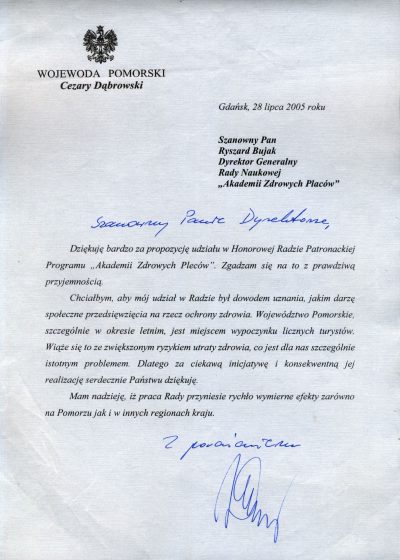 WOJEWODA POMORSKI
Cezary Dąbrowski
Gdańsk, 28 lipca 2005 roku
Szanowny Pan
Ryszard Bujak
Dyrektor Generalny
Rady Naukowej
„Akademii Zdrowych Placów”
Szanowny Panie Dyrektorze,
Dziękuję bardzo za propozycję udziału w Honorowej Radzie Patronackiej
Programu „Akademii Zdrowych Pleców”. Zgadzam się na to z prawdziwą
przyjemnością.
Chciałbym, aby mój udział w Radzie był dowodem uznania, jakim darzę
społeczne przedsięwzięcia na rzecz ochrony zdrowia. Województwo Pomorskie,
szczególnie w okresie letnim, jest miejscem wypoczynku licznych turystów.
Wiąże się to ze zwiększonym ryzykiem utraty zdrowia, co jest dla nas szczególnie
istotnym problemem. Dlatego za ciekawą inicjatywę i konsekwentną jej
realizację serdecznie Państwu dziękuję.
Mam nadzieję, iż praca Rady przyniesie rychło wymierne efekty zarówno
na Pomorzu jak i w innych regionach kraju.
Z poważaniem